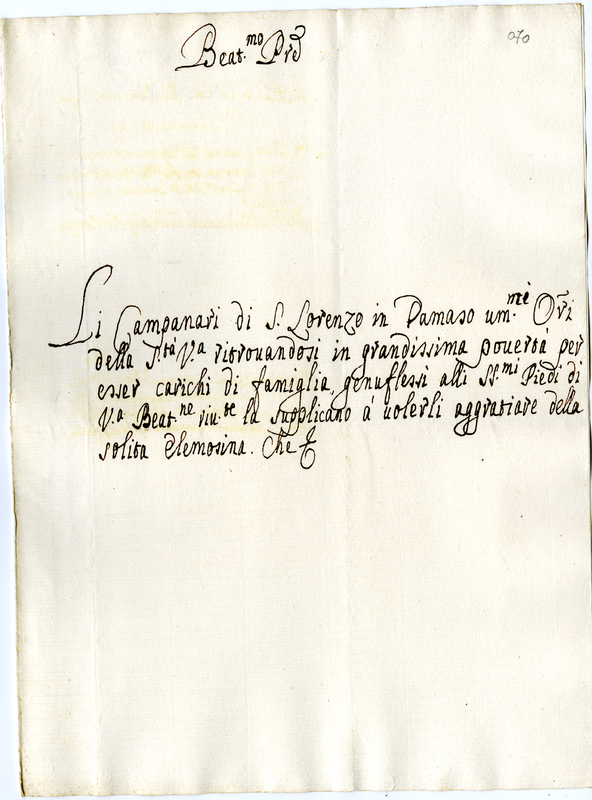 Beat.mo Pre
070
Li Campanari di S. Lorenzo in Damaso um.mi Ori
della S.tà V.a ritrouandosi in grandissima pouertà per
esser carichi di famiglia, genuflessi alli SS.mi Piedi di
V.a Beat.ne riu.te la supplicano à uolerli aggratiare della
solita elemosina. Che &